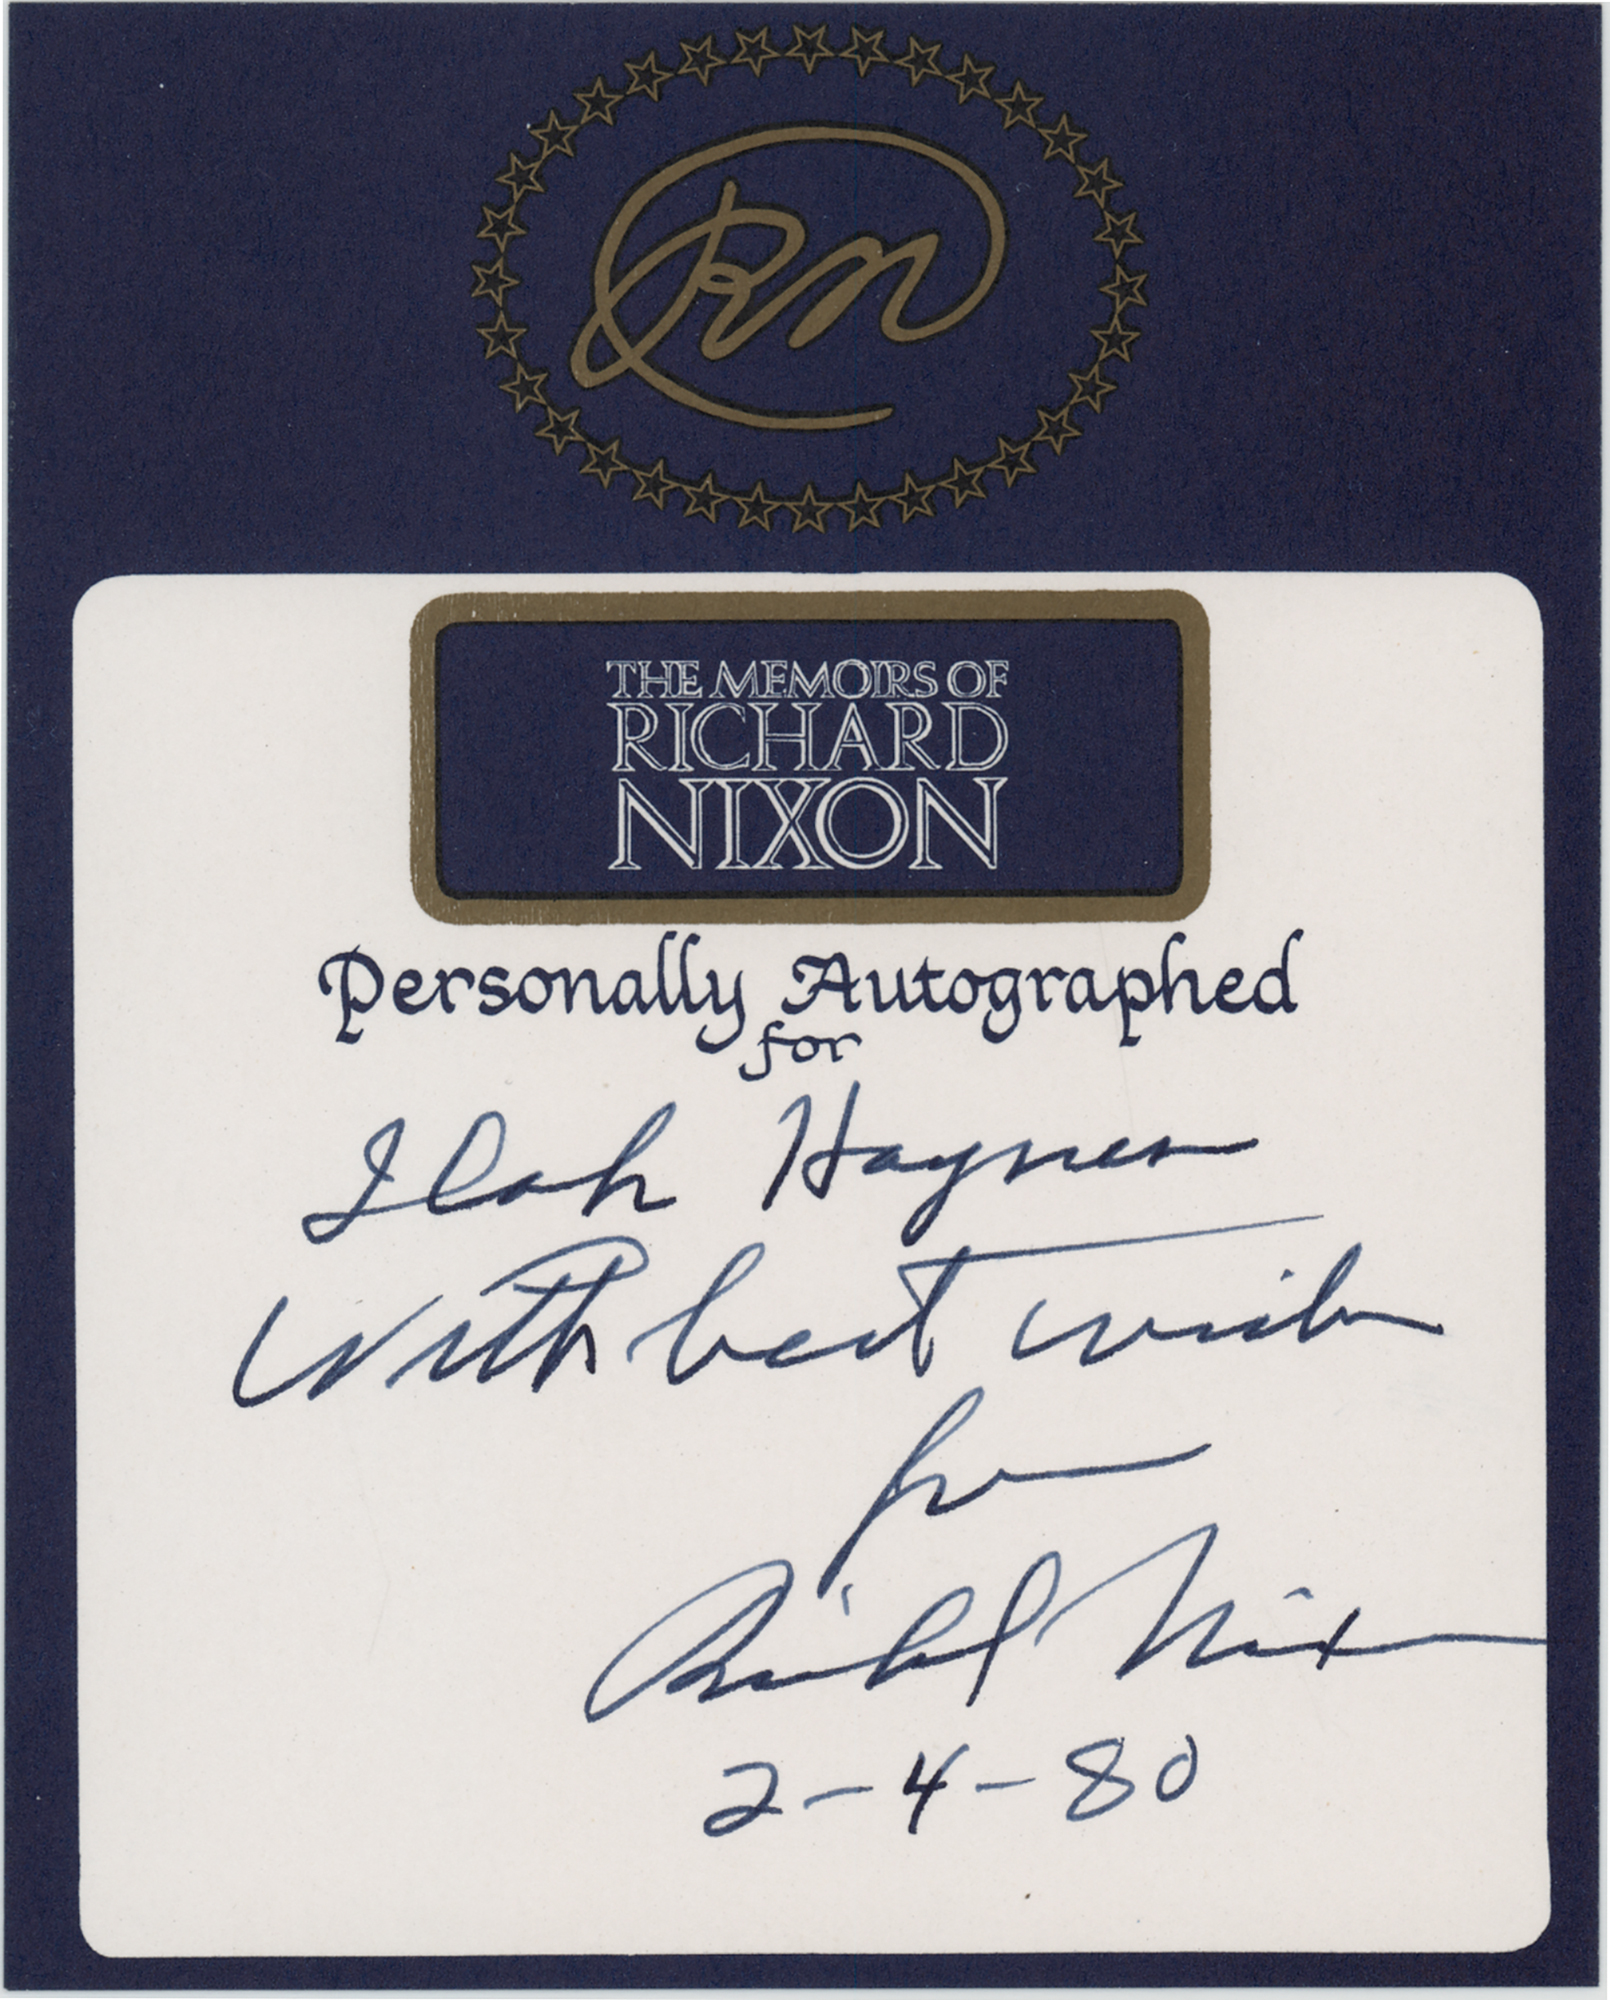 RN
THE MEMOIRS OF
RICHARD
NIXON
Personally Autographed
for
Ilah Haynes
With best wishes
from
Richard Nixon
2-4-80